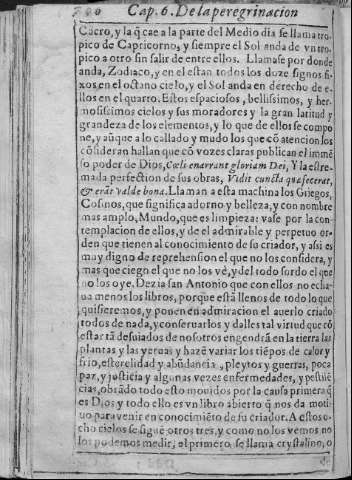 Cap. 6. De la peregrinacion
Cacro, y la q̃ cae a la parte del Medio dia se llama tro
pico de Capricorno, y siempre el Sol anda de vn tro
pico a otro sin salir de entre ellos. Llamase por donde
anda, Zodiaco, y en el estan todos los doze signos fi
xos en el octano cielo, y el Sol anda en derecho de e-
llos en el quarto. Estos espaciosos, bellissimos, y her-
mosissimos cielos y sus moradores y la gran latitud y
grandeza de los elementos, y lo que de ellos se compo
ne, y aũque a lo callado y mudo los que cõ atencion los
cõsideran hallan que cõ vozes claras publican el immẽ
so poder de Dios, Cœli enarrant gloriam Dei, Y la estre-
mada perfection de sus obras, Vidit cuncta quæ fecerat,
& erãt valde bona. Llaman a esta machina los Griegos,
Cosmos, que significa adorno y belleza, y con nombre
mas amplo, Mundo, que es limpieza: vase por la con-
templacion de ellos, y de el admirable y perpetuo or-
den que tienen al conocimiento de su criador, y assi es
muy digno de reprehension el que no los considera, y
mas que ciego el que no los vè, y del todo sordo el que
no los oye. Dezia san Antonio que con ellos no echa-
ua menos los libros, porque està llenos de todo lo que
quisieremos, y ponen en admiracion el auerlo criado
todos de nada, y conseruarlos y dalles tal virtud que cõ
estar tã desuiados de nosotros engendrã en la tierra las
plantas y las yeruas y hazẽ variar los tiẽpos de calor y
frio, esterelidad y abũdancia, pleytos y guerras, poca
paz, y justicia y algunas vezes enfermedades, y pestilẽ
cias, obrãdo todo esto mouidos por la causa primera q̃
es Dios y todo ello es vn libro abierto q̃ nos da moti-
uo para venir en conocimiẽto de su criador. A estos o-
cho cielos se siguẽ otros tres, y como no los vemos no
los podemos medir, el primero se llama crystalino, o